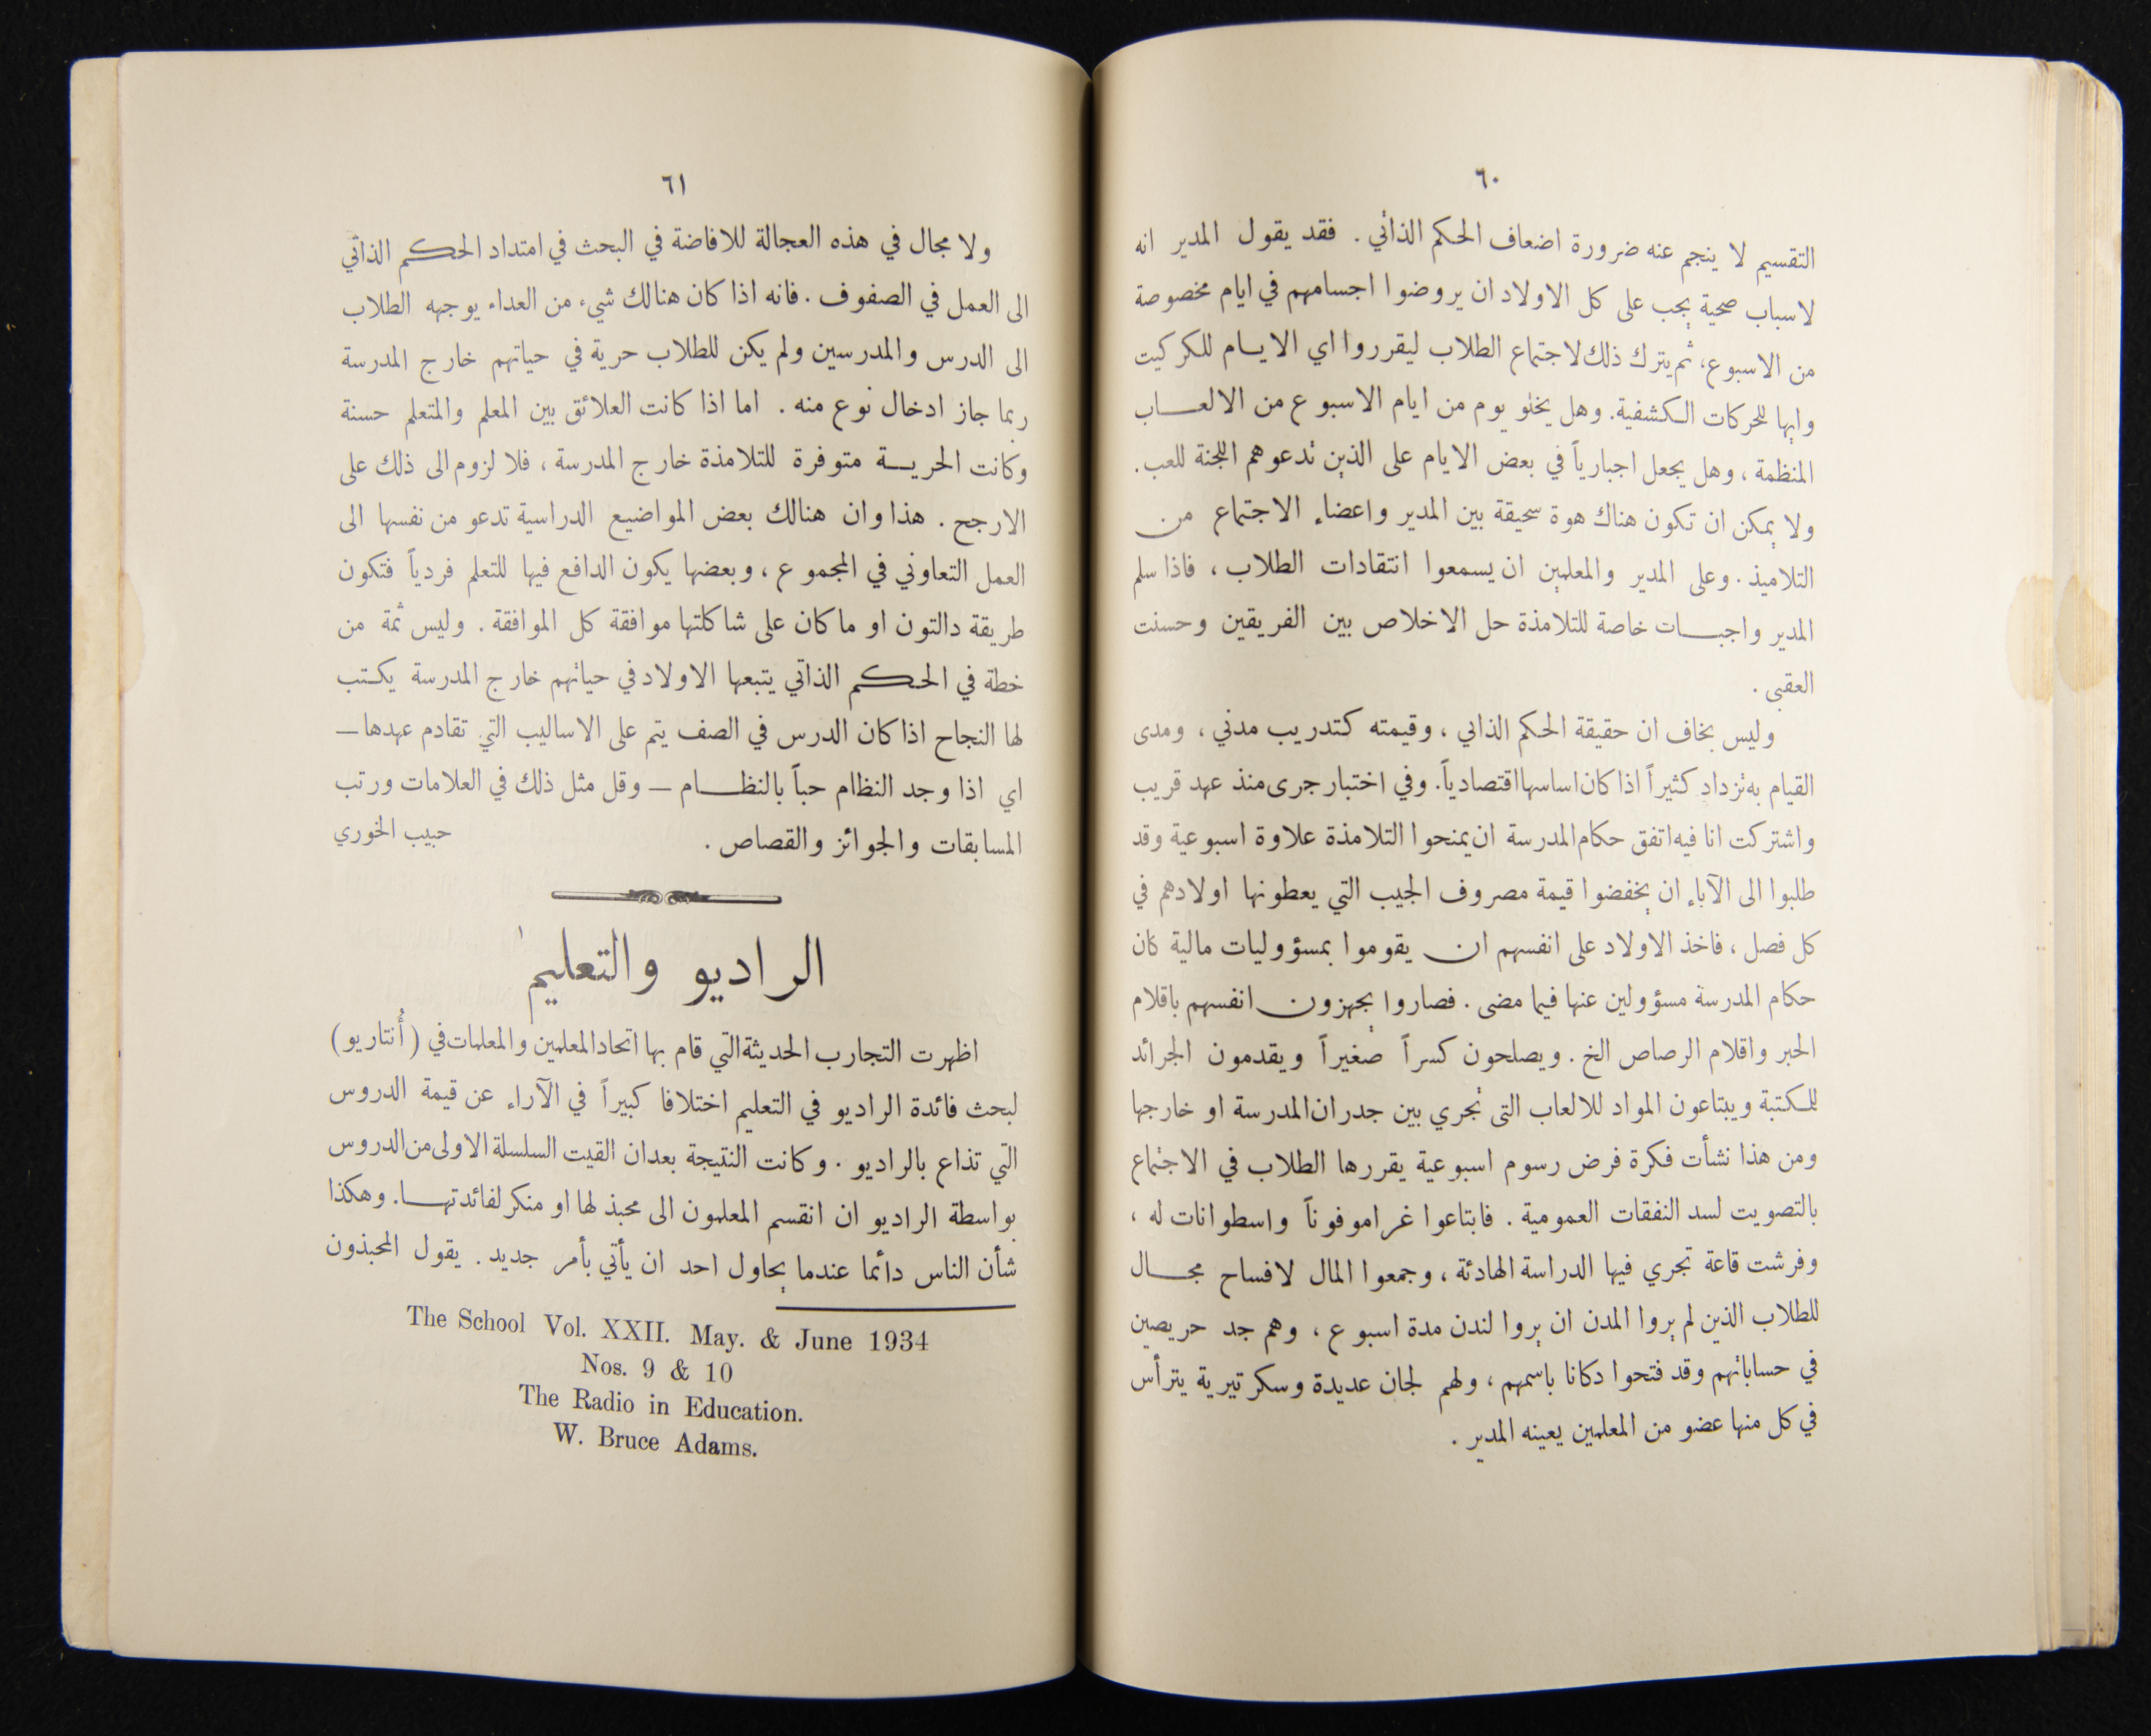 ٦٠
التقسيم لا ينجم عنه ضرورة اضعاف الحكم الذاتي . فقد يقول المدير انه
لاسباب صحية يجب على كل الاولاد ان يروضوا اجسامهم في ايام مخصوصة
من الاسبوع، ثم يترك ذلك لاجتماع الطلاب ليقرروا اي الايام للكركيت
وايها للحركات الكشفية. وهل يخلو يوم من ايام الاسبوع من الالعاب
المنظمة ، وهل يجعل اجبارياً في بعض الايام على الذين تدعوهم اللجنة للعب.
ولا يمكن ان تكون هناك هوة سحيقة بين المدير واعضاء الاجتماع من
التلاميذ . وعلى المدير والمعلمين ان يسمعوا انتقادات الطلاب ، فاذا سلم
المدير واجبات خاصة للتلامذة حل الاخلاص بين الفريقين وحسنت
العقبى .
وليس بخاف ان حقيقة الحكم الذاتي ، وقيمته كتدريب مدني ، ومدى
القيام به تزداد كثيراً اذا كان اساسها اقتصادياً. وفي اختبار جرى منذ عهد قريب
واشتركت انا فيه اتفق حكام المدرسة ان يمنحوا التلامذة علاوة اسبوعية وقد
طلبوا الى الآباء ان يخفضوا قيمة مصروف الجيب التي يعطونها اولادهم في
كل فصل ، فاخذ الاولاد على انفسهم ان يقوموا بمسؤوليات مالية كان
حكام المدرسة مسؤولين عنها فيما مضى . فصاروا يجهزون انفسهم باقلام
الحبر واقلام الرصاص الخ . ويصلحون كسراً صغيراً ويقدمون الجرائد
للمكتبة ويبتاعون المواد للالعاب التى تجري بين جدران المدرسة او خارجها
ومن هذا نشأت فكرة فرض رسوم اسبوعية يقررها الطلاب في الاجتماع
بالتصويت لسد النفقات العمومية . فابتاعوا غراموفوناً واسطوانات له ،
وفرشت قاعة تجري فيها الدراسة الهادئة ، وجمعوا المال لافساح مجال
للطلاب الذين لم يروا المدن ان يروا لندن مدة اسبوع ، وهم جد حريصين
في حساباتهم وقد فتحوا دكانا باسمهم ، ولهم لجان عديدة وسكرتيرية يترأس
في كل منها عضو من المعلمين يعينه المدير .
٦١
ولا مجال في هذه العجالة للافاضة في البحث في امتداد الحكم الذاتي
الى العمل في الصفوف . فانه اذا كان هنالك شيء من العداء يوجهه الطلاب
الى الدرس والمدرسين ولم يكن للطلاب حرية في حياتهم خارج المدرسة
ربما جاز ادخال نوع منه . اما اذا كانت العلائق بين المعلم والمتعلم حسنة
وكانت الحرية متوفرة للتلامذة خارج المدرسة ، فلا لزوم الى ذلك على
الارجح . هذا وان هنالك بعض المواضيع الدراسية تدعو من نفسها الى
العمل التعاوني في المجموع ، وبعضها يكون الدافع فيها للتعلم فردياً فتكون
طريقة دالتون او ما كان على شاكلتها موافقة كل الموافقة . وليس ثمة من
خطة في الحكم الذاتي يتبعها الاولاد في حياتهم خارج المدرسة يكتب
لها النجاح اذا كان الدرس في الصف يتم على الاساليب التي تقادم عهدها —
اي اذا وجد النظام حباً بالنظام — وقل مثل ذلك في العلامات ورتب
المسابقات والجوائز والقصاص . حبيب الخوري
الراديو والتعليم ١
اظهرت التجارب الحديثة التي قام بها اتحاد المعلمين والمعلمات في (أُنتاريو)
لبحث فائدة الراديو في التعليم اختلافا كبيراً في الآراء عن قيمة الدروس
التي تذاع بالراديو . وكانت النتيجة بعد ان القيت السلسلة الاولى من الدروس
بواسطة الراديو ان انقسم المعلمون الى محبذ لها او منكر لفائدتها. وهكذا
شأن الناس دائما عندما يحاول احد ان يأتي بأمر جديد . يقول المحبذون
The School Vol. XXII. May. & June 1934
Nos. 9 & 10
The Radio in Education.
W. Bruce Adams.